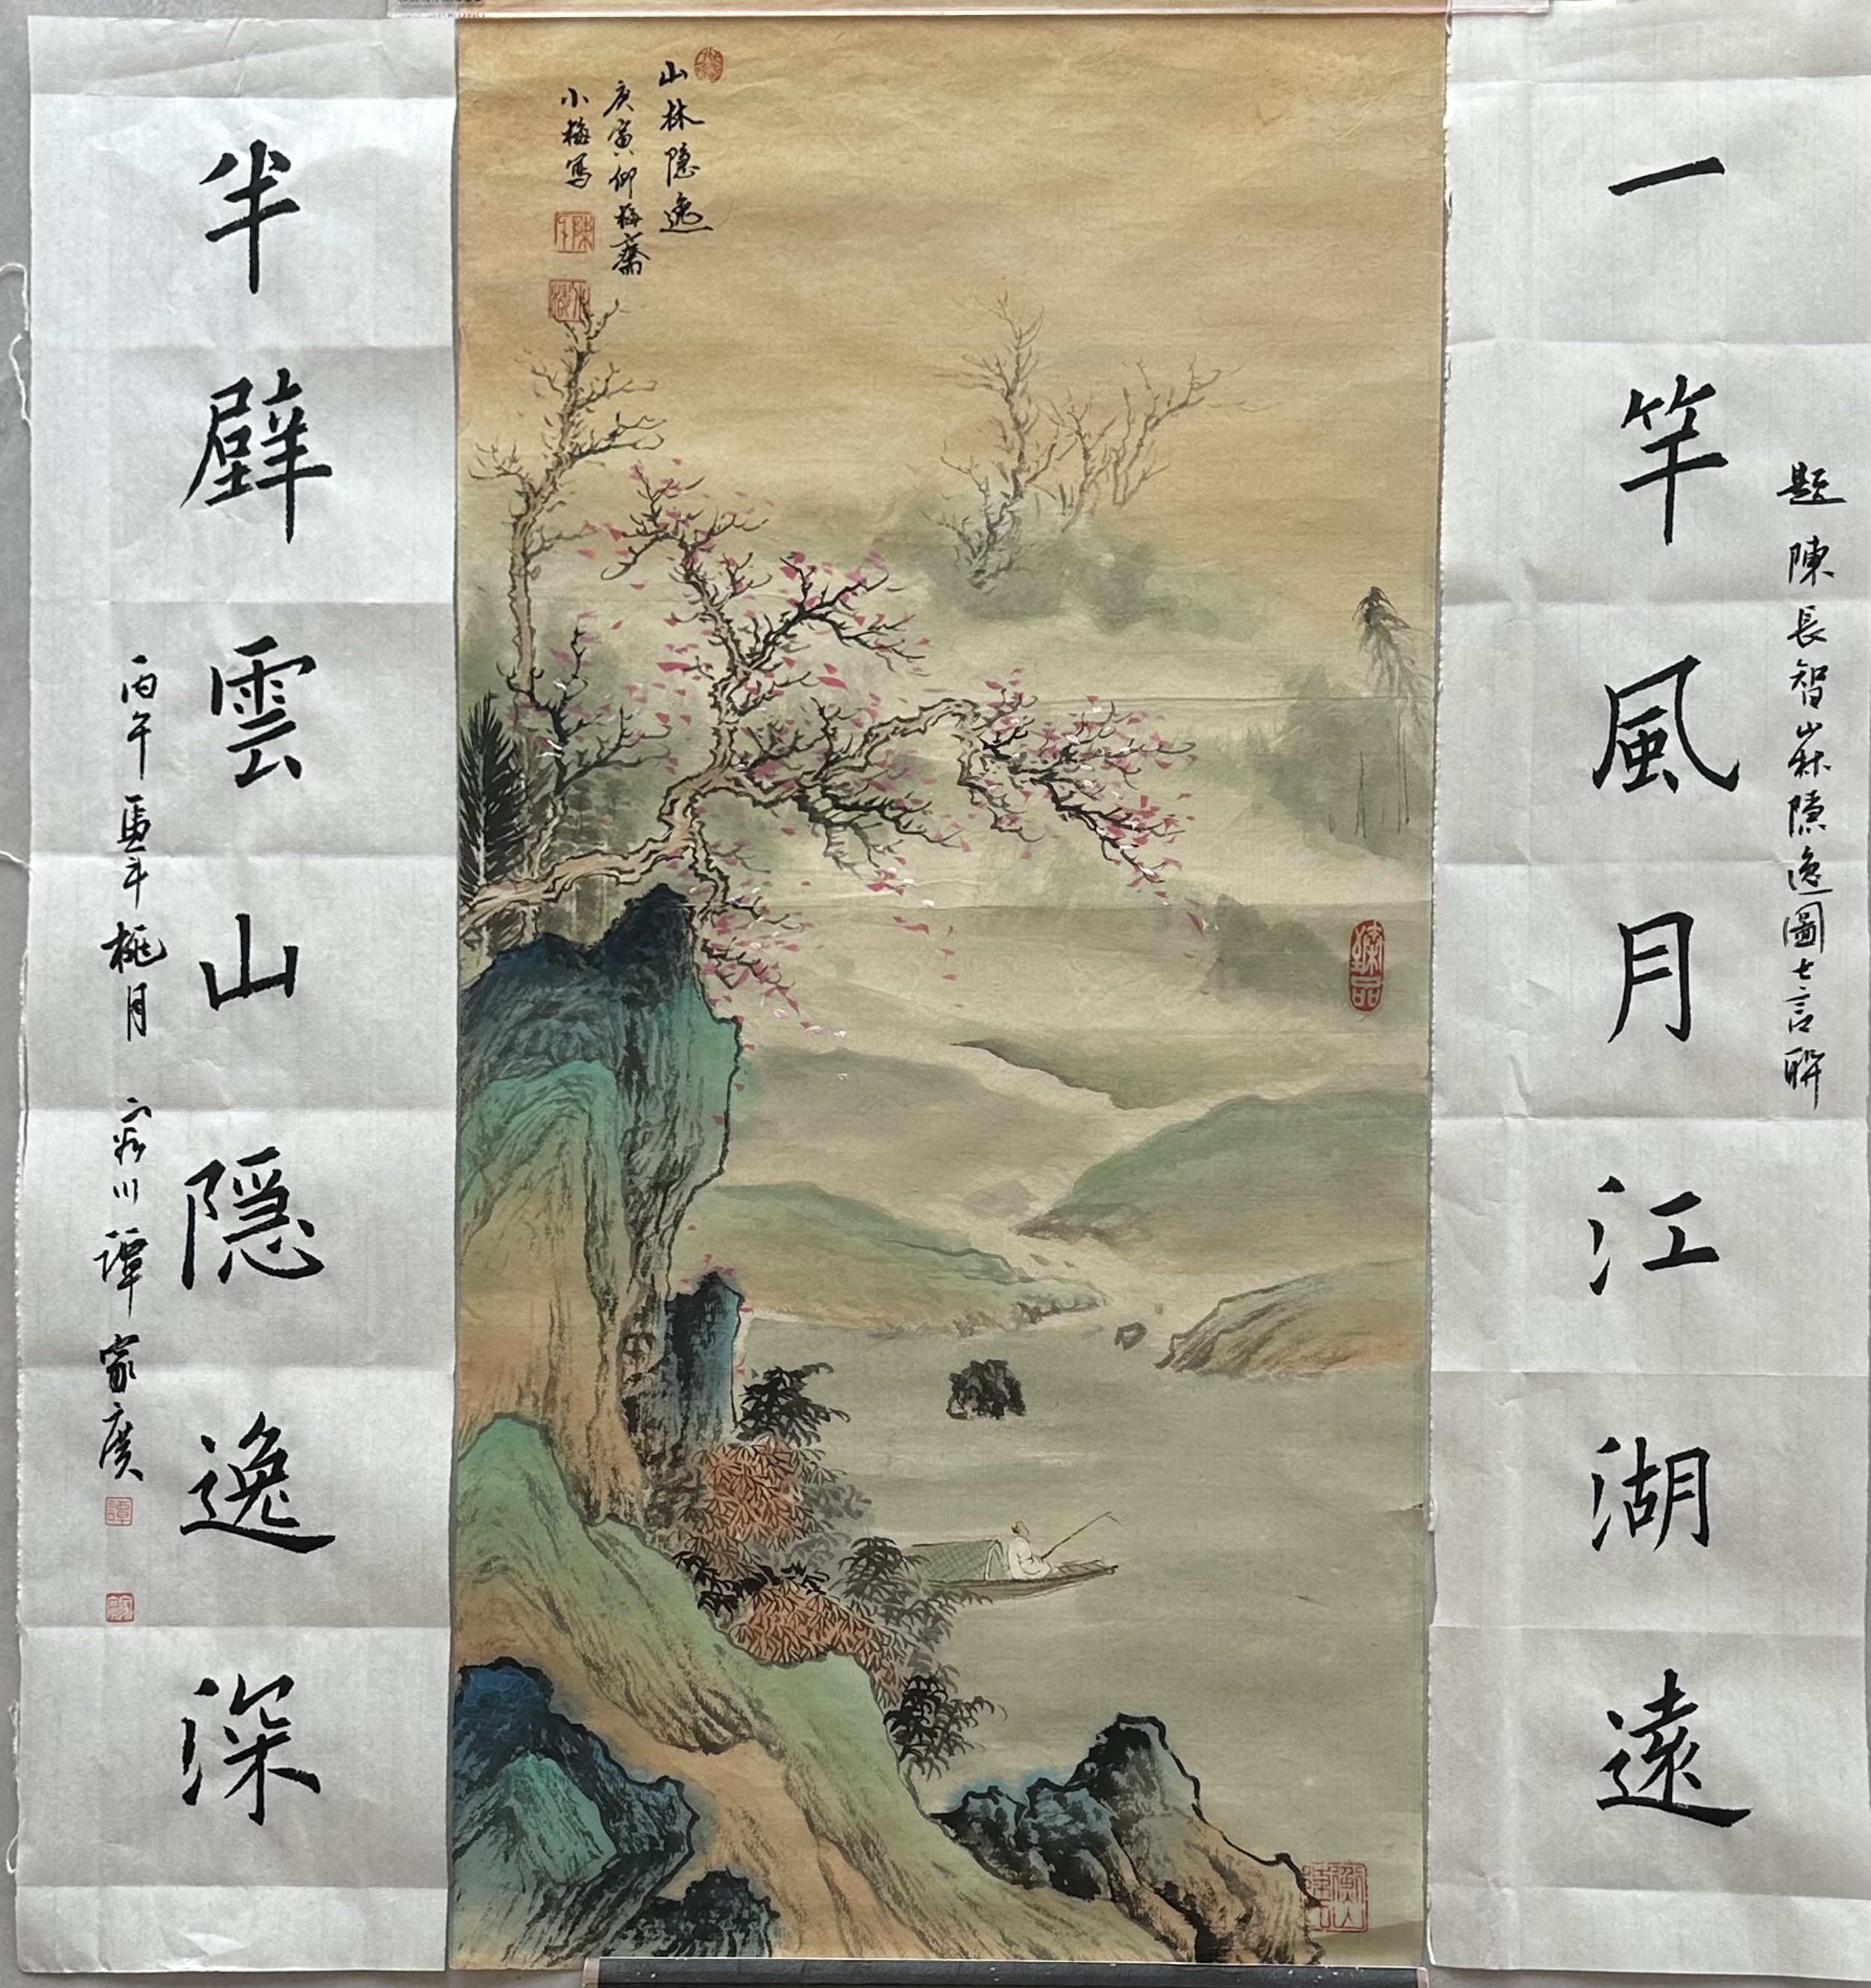 題陳長智山林隱逸圖七言聯
一竿風月江湖遠
山林隐逸
庚寅仰梅齋
小梅寫
半壁雲山隱逸深
丙午馬年桃月
川譚家廣